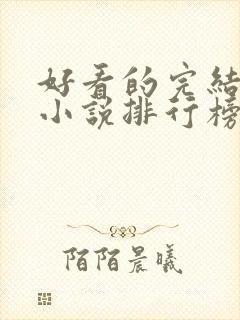 好看的完結
小說排行榜
陌陌晨曦